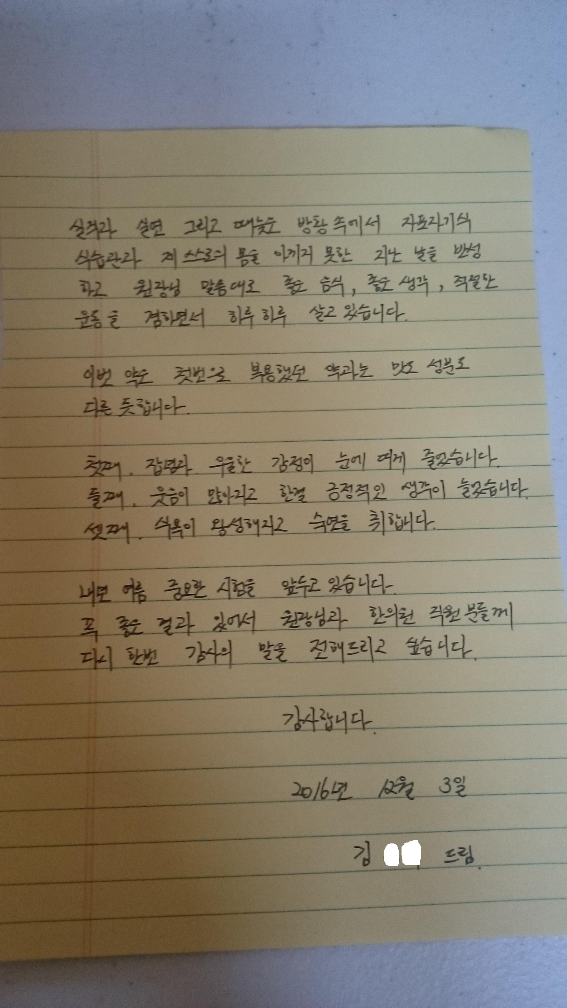 실직과 실연 그리고 때늦은 방황 속에서 자포자기식
식습관과 제 스스로의 몸을 아끼지 못한 지난 날을 반성
하고 원장님 말씀대로 좋은 음식, 좋은 생각, 적절한
운동을 겸하면서 하루하루 살고 있습니다.
이번 약은 첫번으로 복용했던 약과는 맛도 성분도
다른 듯합니다.
첫째. 잡념과 우울한 감정이 눈에 띄게 줄었습니다.
둘째. 웃음이 많아지고 한결 긍정적인 생각이 늘었습니다.
셋째. 식욕이 왕성해지고 숙면을 취합니다.
내년 여름 중요한 시험을 앞두고 있습니다.
꼭 좋은 결과 있어서 원장님과 한의원 직원분들께
다시 한번 감사의 말을 전해드리고 싶습니다.
감사합니다.
2016년 12월 3일
김 드림.